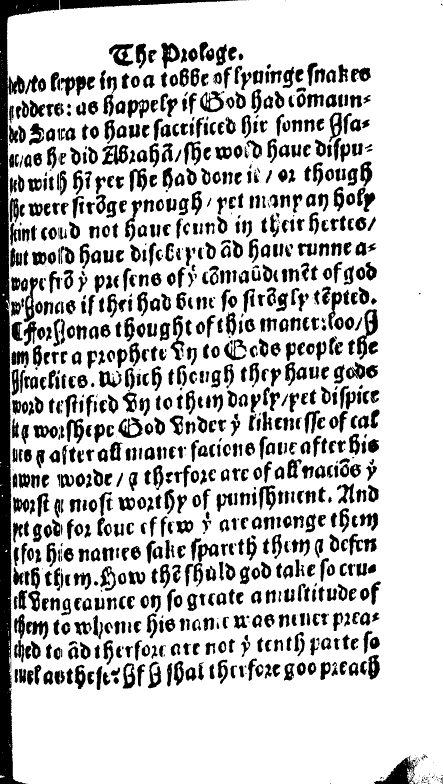 The Prologe.
ded/to leppe in to a tobbe of lyuinge snakes
⁊edders: as happely if God had cōmaun-
ded Sara to haue sacrificed hir sonne Isa-
ac/as he did Abrahā/she wold haue dispu-
ted with hī yer she had done it/ or though
she were strōge ynough/ yet many an holy
saint coud not haue found in their hertes/
but wold haue disobeyed ād haue runne a-
waye frō yͤ presens of yͤ cōmaūdemēt of god
wͭ Jonas if thei had bene so strōgly tēpted.
¶ ffor Jonas thought of this maner: loo/I
am here a prophete vn to Gods people the
Israelites. Which though they haue gods
word testified vn to them dayly/yet dispice
it ⁊ worshepe God vnder yͤ likenesse of cal
ues ⁊ after all maner facions saue after his
awne worde/ ⁊ therfore are of all naciōs yͤ
worst ⁊ most worthy of punishment. And
yet god for loue of few yͭ are amonge them
⁊ for his names sake spareth them ⁊ defen
deth them. How thē shuld god take so cru-
ell vengeaunce on so greate a multitude of
them to whome his name was neuer prea-
ched to ād therfore are not yͤ tenth parte so
euel as these? If I shal therfore goo preach